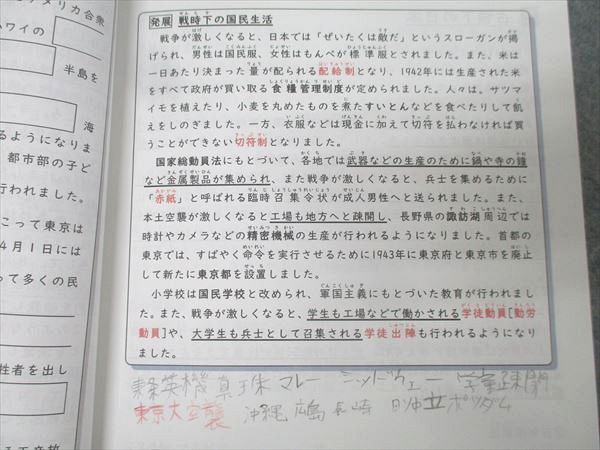 アメリカ合衆
ハワイの
半島を
海
るようになりま
都市部の子ど
行われました。
こって東京は
4月1日には
って多くの民
牲者を出し
発展 戦時下の国民生活
戦争が激しくなると、日本では「ぜいたくは敵だ」というスローガンが掲
げられ、男性は国民服、女性はもんぺが標準服とされました。また、米は
一日あたり決まった量が配られる配給制となり、1942年には生産された米
をすべて政府が買い取る食糧管理制度が定められました。人々は、サツマ
イモを植えたり、小麦を丸めたものを煮たすいとんなどを食べたりして飢
えをしのぎました。一方、衣服などは現金に加えて切符を払わなければ買
うことができない切符制となりました。
国家総動員法にもとづいて、各地では武器などの生産のために鍋や寺の鐘
など金属製品が集められ、また戦争が激しくなると、兵士を集めるために
「赤紙」と呼ばれる臨時召集令状が成人男性へと送られました。また、
本土空襲が激しくなると工場も地方へと疎開し、長野県の諏訪湖周辺では
時計やカメラなどの精密機械の生産が行われるようになりました。首都の
東京では、すばやく命令を実行させるために1943年に東京府と東京市を廃止
して新たに東京都を設置しました。
小学校は国民学校と改められ、軍国主義にもとづいた教育が行われまし
た。また、戦争が激しくなると、学生も工場などで働かされる学徒動員[勤労
動員]や、大学生も兵士として召集される学徒出陣も行われるようになり
ました。
東条英機 真珠 マレー ミッドウェー 学童疎開
東京大空襲 沖縄 広島 長崎 日ソ中立 ポツダム